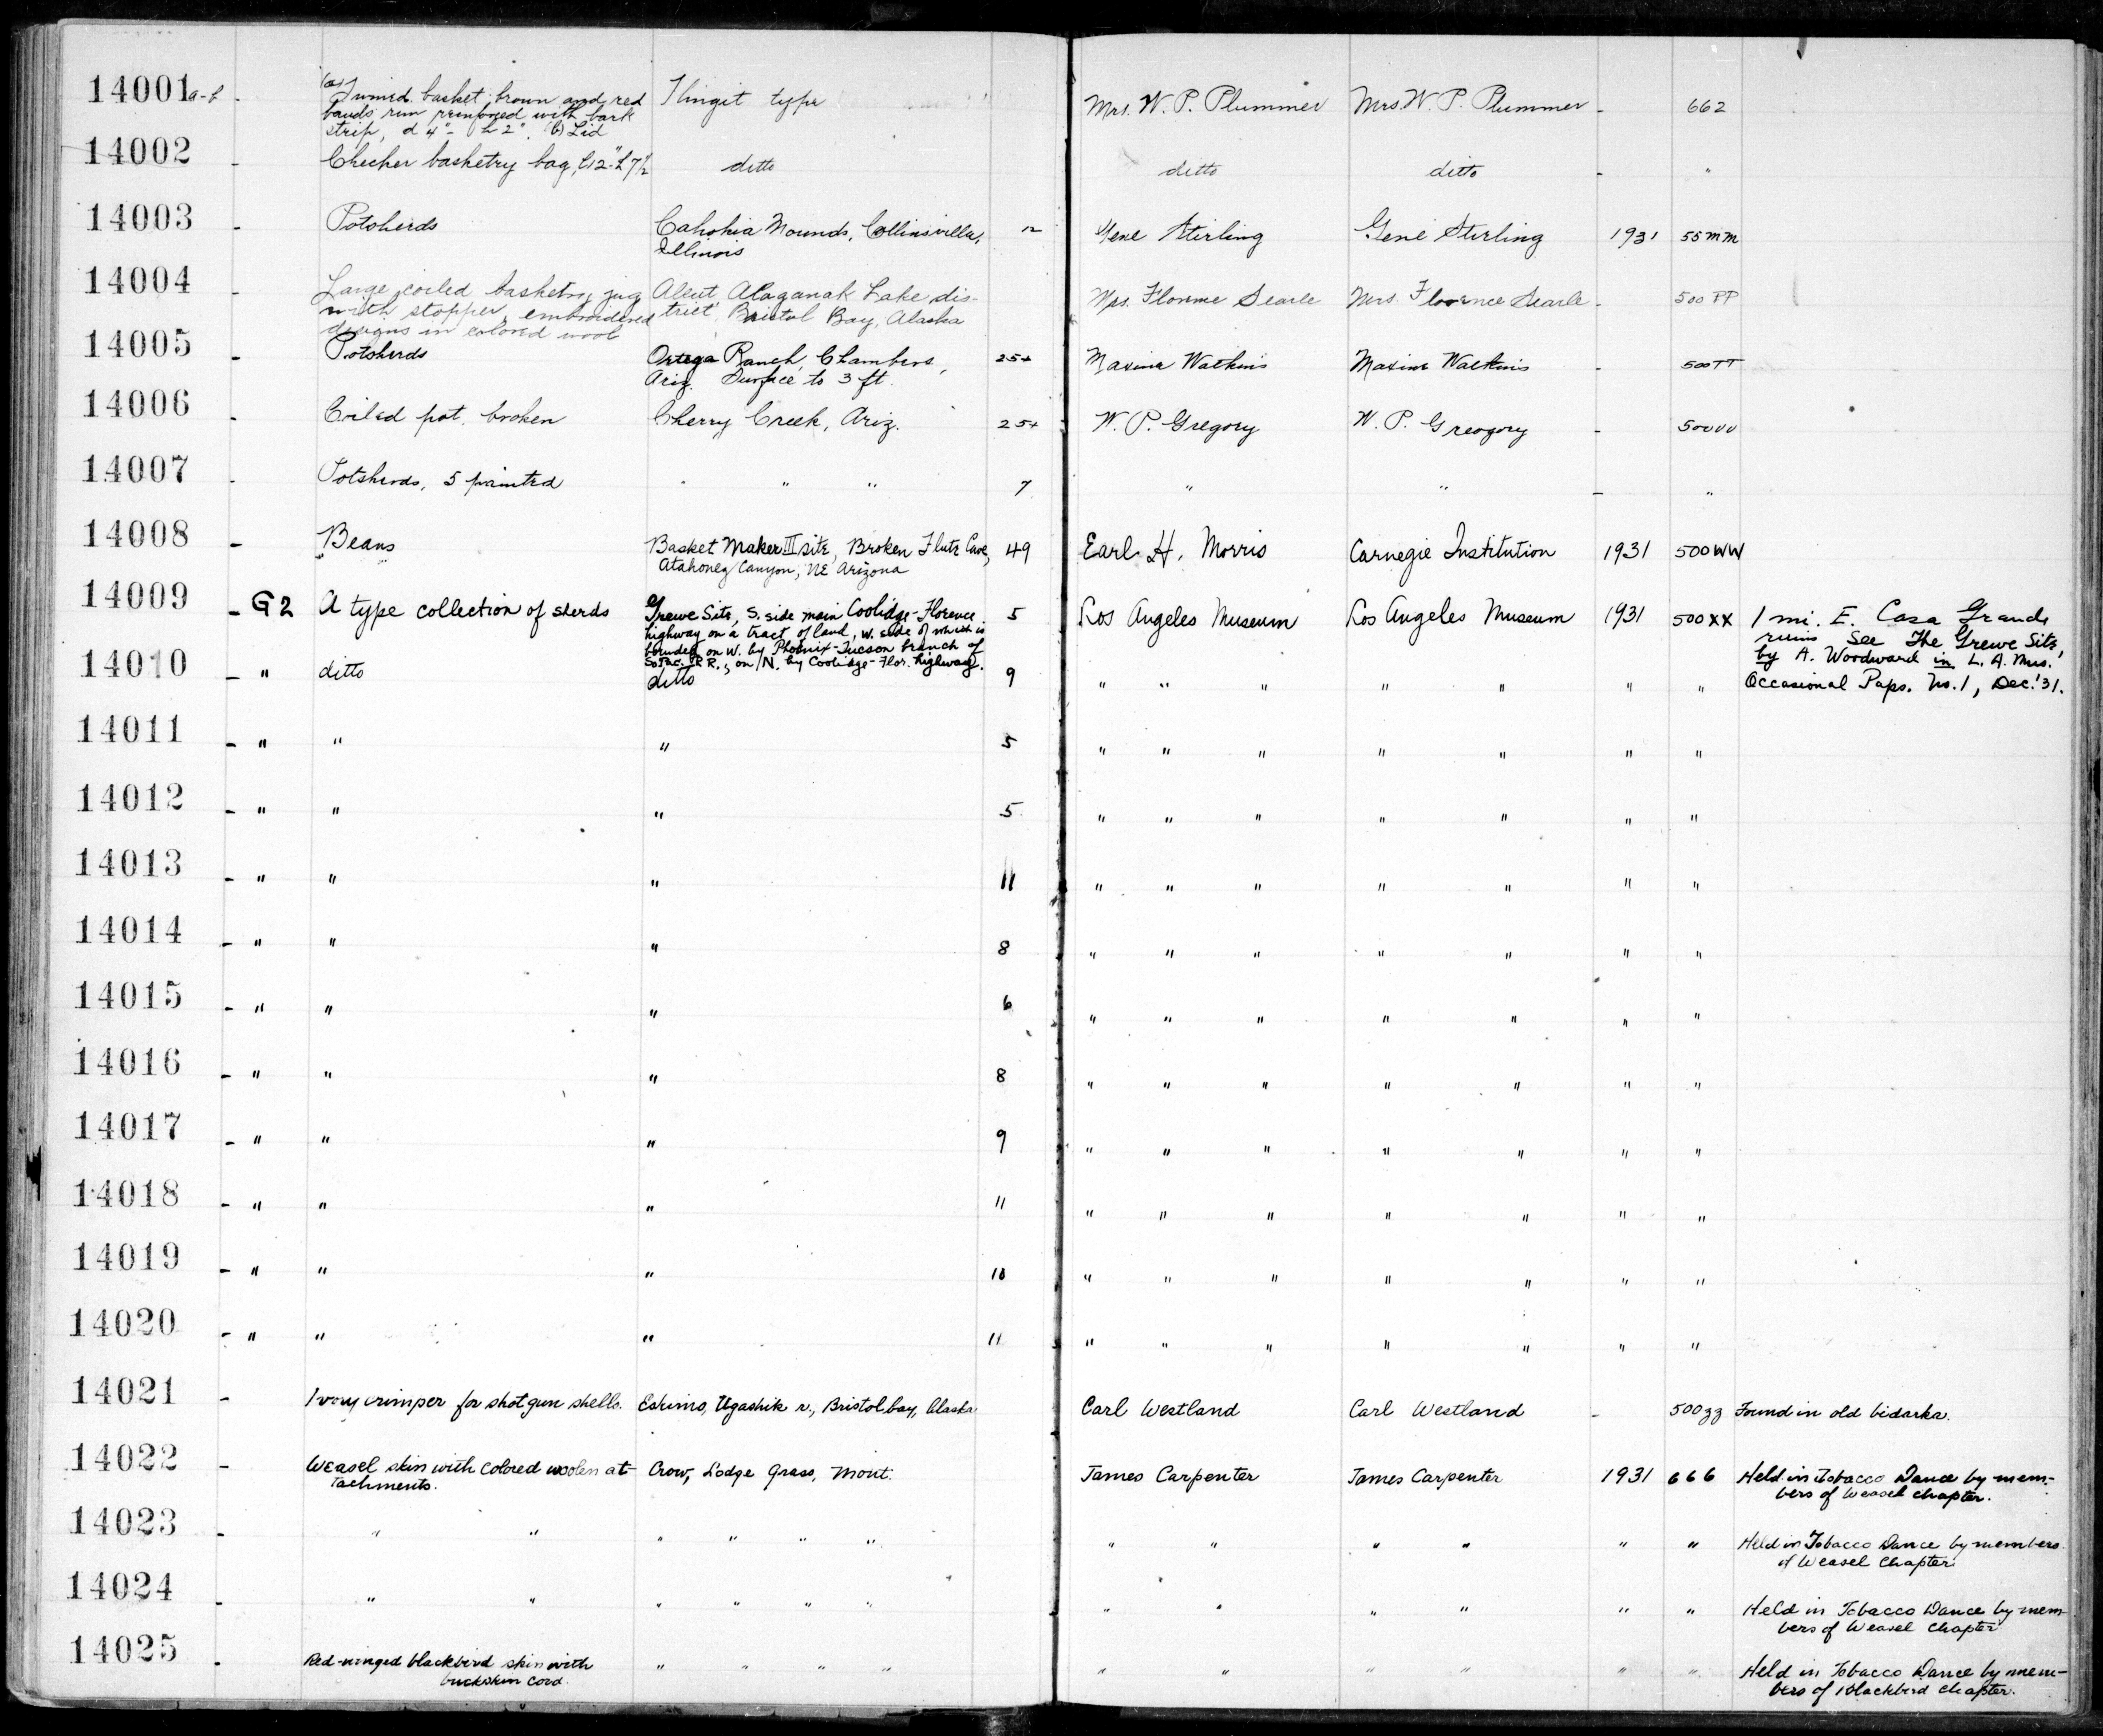 14001 a-b - (a) Twined basket brown and red Tlingit type Mrs. W. P. Plummer Mrs. W. P. Plummer - 662
bands run reinforced with bark
strip, d 4" - h 2". (b) Lid
14002 - Checker basketry bag, l 12" - h 7½ ditto ditto ditto - "
14003 - Potsherds Cahokia Mounds, Collinsville, 12 Gene Stirling Gene Stirling 1931 55mm
Illinois
14004 - Large coiled basketry jug Aleut Alaganak Lake dis- Mrs. Florence Searle Mrs. Florence Searle - 500 PP
with stopper, embroidered trict Bristol Bay, Alaska
designs in colored wool
14005 - Potsherds Ortega Ranch, Chambers, 25+ Maxine Watkins Maxine Watkins - 500TT
Ariz. Surface to 3 ft.
14006 - Coiled pot, broken Cherry Creek, Ariz. 25+ W. P. Gregory W. P. Greogory - 500VV
14007 - Potsherds, 5 painted " " " 7 " " - "
14008 - Beans Basket Maker III site, Broken Flute Cave, 49 Earl H. Morris Carnegie Institution 1931 500WW
Atahonez Canyon, NE Arizona
14009 - G2 A type collection of sherds Grewe Site, S. side main Coolidge-Florence 5 Los Angeles Museum Los Angeles Museum 1931 500XX 1 mi. E. Casa Grande
highway on a tract of land, w. side of which is ruins. See The Grewe Site,
bounded on W. by Phoenix-Tucson branch of by A. Woodward in L. A. Mus.
So. Pac. R R., on N. by Coolidge-Flor. highway.
14010 - " ditto ditto 9 " " " " " " " Occasional Paps. No. 1, Dec. '31.
14011 - " " " 5 " " " " " " "
14012 - " " " 5 " " " " " " "
14013 - " " " 11 " " " " " " "
14014 - " " " 8 " " " " " " "
14015 - " " " 6 " " " " " " "
14016 - " " " 8 " " " " " " "
14017 - " " " 9 " " " " " " "
14018 - " " " 11 " " " " " " "
14019 - " " " 10 " " " " " " "
14020 - " " " 11 " " " " " " "
14021 - Ivory crimper for shotgun shells. Eskimo, Ugashik r., Bristol bay, Alaska Carl Westland Carl Westland - 500zz Found in old bidarka.
14022 - Weasel skin with colored woolen at- Crow, Lodge Grass, Mont. James Carpenter James Carpenter 1931 666 Held in Tobacco Dance by mem-
tachments. bers of Weasel chapter.
14023 - " " " " " " " " " " " " Held in Tobacco Dance by members
of Weasel Chapter
14024 - " " " " " " " " " " " " Held in Tobacco Dance by mem-
bers of Weasel Chapter
14025 - Red-winged blackbird skin with " " " " " " " " " " Held in Tobacco Dance by mem-
buckskin cord bers of Blackbird chapter.